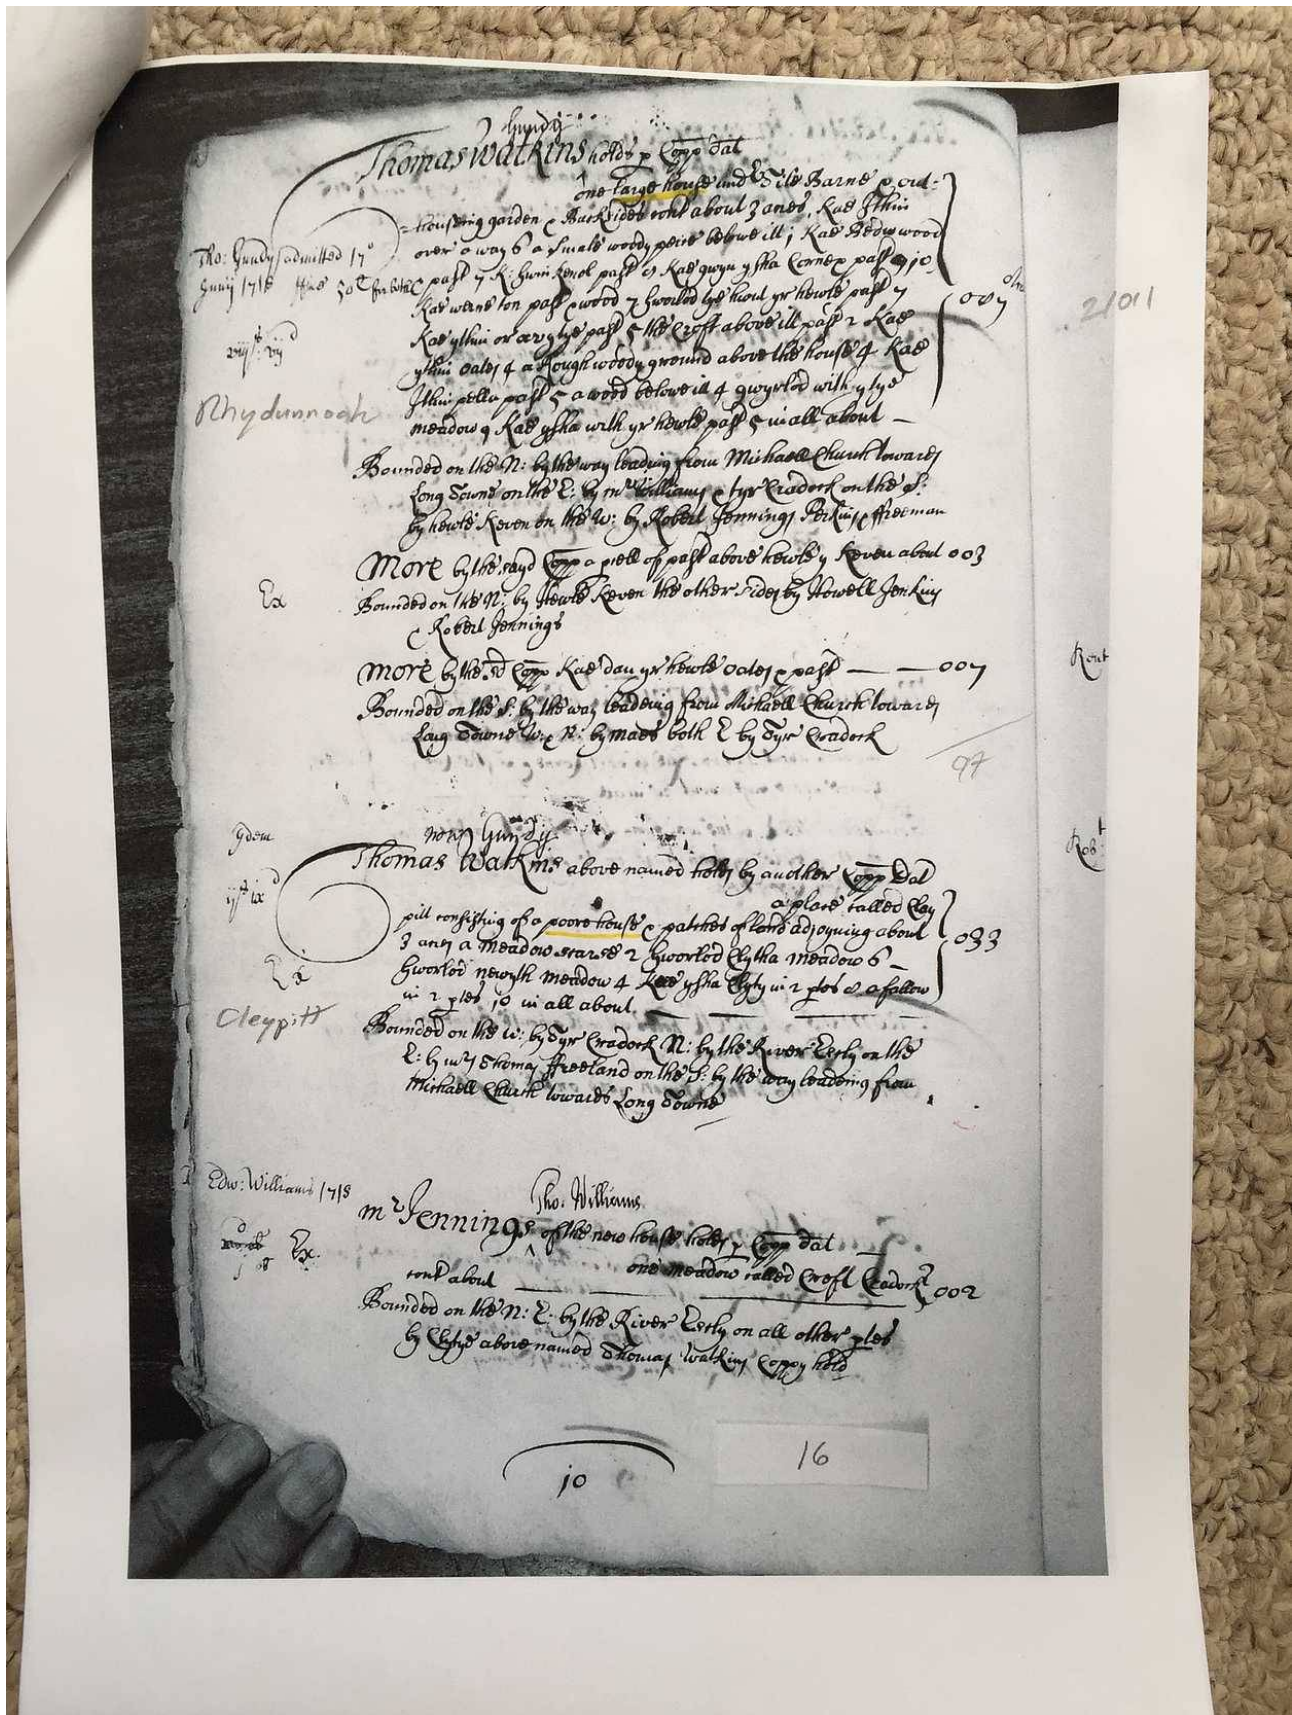 Gundy
Thomas Watkins holds p Copp dat
one large house and Tile Barne & out=
=houseing garden & Backsides cont about 3 acres, Kae Ithin
over a way 6 a smale woody peice belowe ill j Kae Bedw wood
Tho: Gundy admitted 17°
Junij 1718
& past 7 K: past Kae gwyn ysha Corne & past 10
Kae werne ton past & wood 7 yr hewle past 7
Kae ythin past 5 the Croft above ill past 2 Kae
ythin oates 4 a Rough woody ground above the house 4 Kae
Rhydunnoah
Ithin pella past 5 a wood belowe ill 4 gwyrlod with y lye
meadow 9 Kae ysha with yr hewle past 5 in all about —
2/011
Bounded on the N: by the way leading from Michaell Church towards
Long Towne on the E: by mr Williams & tyr Cradock on the S:
by hewle Keven on the W: by Robert Jennings Perkins & ffreeman
More by the sayd Copp a peell of past above hewle y Keven about 003
Ex
Bounded on the N: by Hewle Keven the other sides by Howell Jenkins
& Robert Jennings
more by the sd Copp Kae dan yr hewle oates & past — — 007
Rent
Bounded on the S: by the way leadeing from Michaell Church towards
Long Towne W: & N: by maes both E by Tyr Cradock
97
now Gundy
ydem
Thomas Watkins above named holds by another Copp Dat
a place called Clay
pill consisting of a poore house & patches of land adjoyning about
3 acres a meadow scarse 2 Gworlod Clytha meadow 6 –
033
Gworlod newyth meadow 4 Kae ysha Clyty in 2 ptes 8 a fallow
Ex
in 2 ptes 10 in all about
Cleypitt
Bounded on the W: by Tyr Cradock N: by the River Eskly on the
E: by mrs Thomas ffreeland on the S: by the way leadeing from
Michaell Church towards Long Towne
Rob:t
Edw: Williams 1718
Tho: Williams
mr Jennings ^ of the new house holds p Copp dat
Ex.
one meadow called Croft Cradock
cont about 002
Bounded on the N: E: by the River Eskly on all other ptes
by Clytye above named Thomas Watkins Coppy hold
10
16